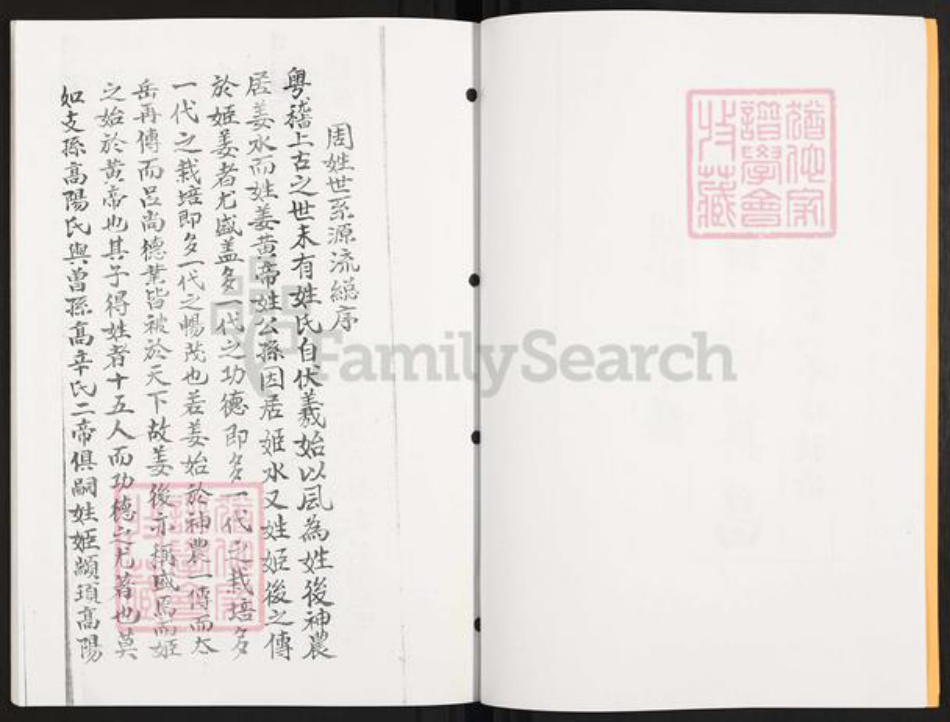 周姓世系源流總序
粵稽上古之世未有姓氏自伏羲始以風為姓後神農
居姜水而姓姜黃帝姓公孫因居姬水又姓姬後之傳
於姬姜者尤盛盖多一代之功德即多一代之栽培多
一代之栽培即多一代之暢茂也若姜始於神農一傳而太
岳再傳而呂尚德業皆被於天下故姜後亦稱盛焉而姬
之始於黃帝也其子得姓者十五人而功德之尤著也莫
如支孫高陽氏與曾孫高辛氏二帝俱嗣姓姬顓頊高陽
譜學會
收藏
FamilySearch